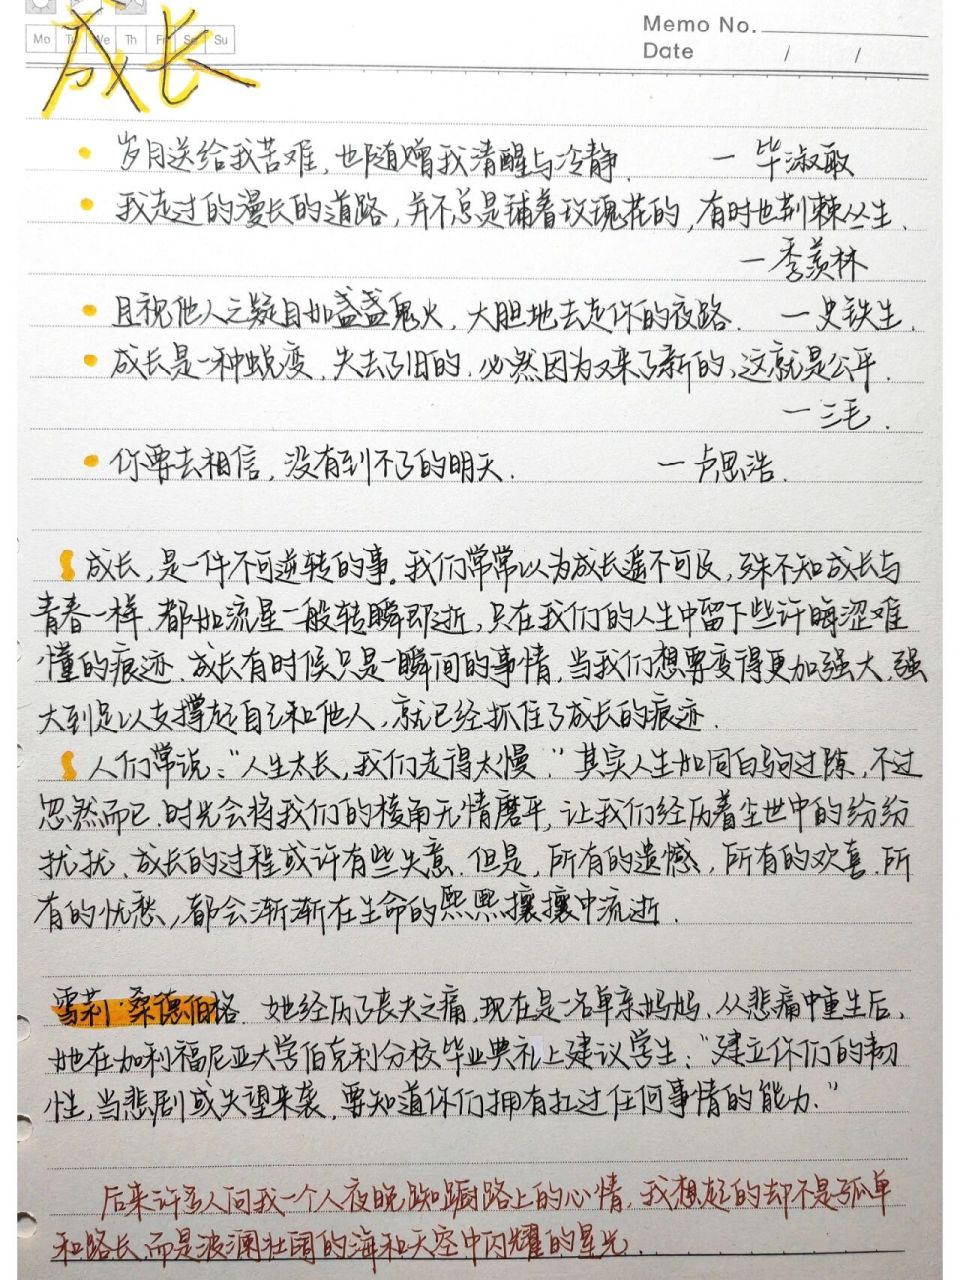 Memo No.
Mo Tu We Th Fr Sa Su
Date / /
成长
岁月送给我苦难，也随赠我清醒与冷静. — 毕淑敏
我走过的漫长的道路，并不总是铺着玫瑰花的，有时也荆棘丛生.
— 季羡林
且视他人之疑目如盏盏鬼火，大胆地去走你的夜路. — 史铁生.
成长是一种蜕变，失去了旧的，必然因为又来了新的，这就是公平.
— 三毛.
你要去相信，没有到不了的明天. — 卢思浩.
成长，是一件不可逆转的事。我们常常以为成长遥不可及，殊不知成长与
青春一样，都如流星一般转瞬即逝，只在我们的人生中留下些许晦涩难
懂的痕迹.成长有时候只是一瞬间的事情，当我们想要变得更加强大，强
大到足以支撑起自己和他人，就已经抓住了成长的痕迹.
人们常说：“人生太长，我们走得太慢.”其实人生如同白驹过隙，不过
忽然而已.时光会将我们的棱角无情磨平，让我们经历着尘世中的纷纷
扰扰.成长的过程或许有些失意.但是，所有的遗憾，所有的欢喜.所
有的忧愁，都会渐渐在生命的熙熙攘攘中流逝.
雪莉·桑德伯格.她经历了丧夫之痛，现在是一名单亲妈妈，从悲痛中重生后，
她在加利福尼亚大学伯克利分校毕业典礼上建议学生：“建立你们的韧
性，当悲剧或失望来袭，要知道你们拥有扛过任何事情的能力.”
后来许多人问我一个人夜晚踟蹰路上的心情，我想起的却不是孤单
和路长，而是波澜壮阔的海和天空中闪耀的星光.